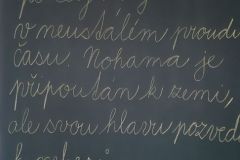 v neustálém proudu
času. Nohama je
připoután k zemi,
ale svou hlavu pozved
k